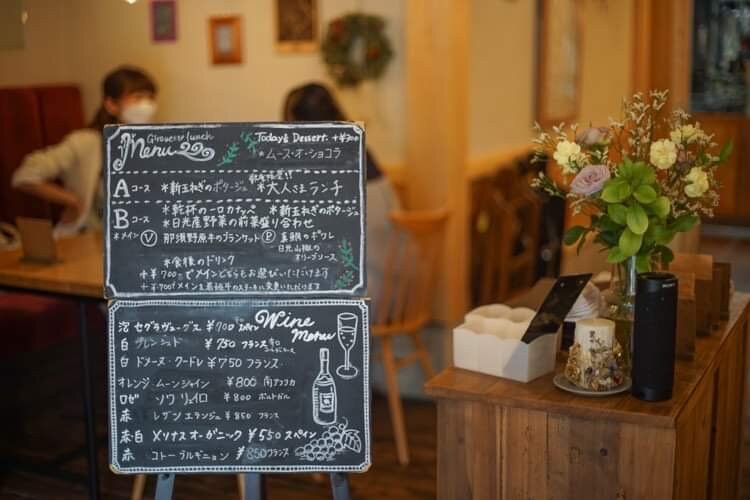 Girouette lunch
Menu
Today's Dessert. +¥300
*ムース・オ・ショコラ
Aコース *新玉ねぎのポタージュ *大人さまランチ
Bコース *乾杯の一口カップ *新玉ねぎのポタージュ
*日光産野菜の前菜盛り合わせ
*メイン Ⓥ 那須野原牛のブランケット Ⓟ 真鯛のポワレ
日光山椒の
オリーブソース
*食後のドリンク
+¥700でメインどちらもお選びいただけます
Wine Menu
泡 セグラヴューダス ¥700
白 ¥750 フランス
白 ドメーヌ・クードレ ¥750 フランス
オレンジ ムーンシャイン ¥800 南アフリカ
ロゼ ¥800 ポルトガル
赤 レザン エランジュ ¥850 フランス
赤・白 メリナス オーガニック ¥550 スペイン
赤 コトー ブルギニョン ¥850 フランス